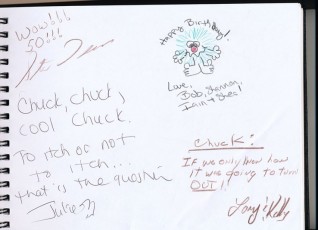 Wow!!!!
50!!!
Happy Birthday!
Love,
Bob, Shannon,
Iain & Shea!
Chuck, chuck,
cool Chuck.
To itch or not
to itch...
that is the question
Julie
Chuck:
IF we only knew how
it was going to turn
OUT!!
Tony & Kelly